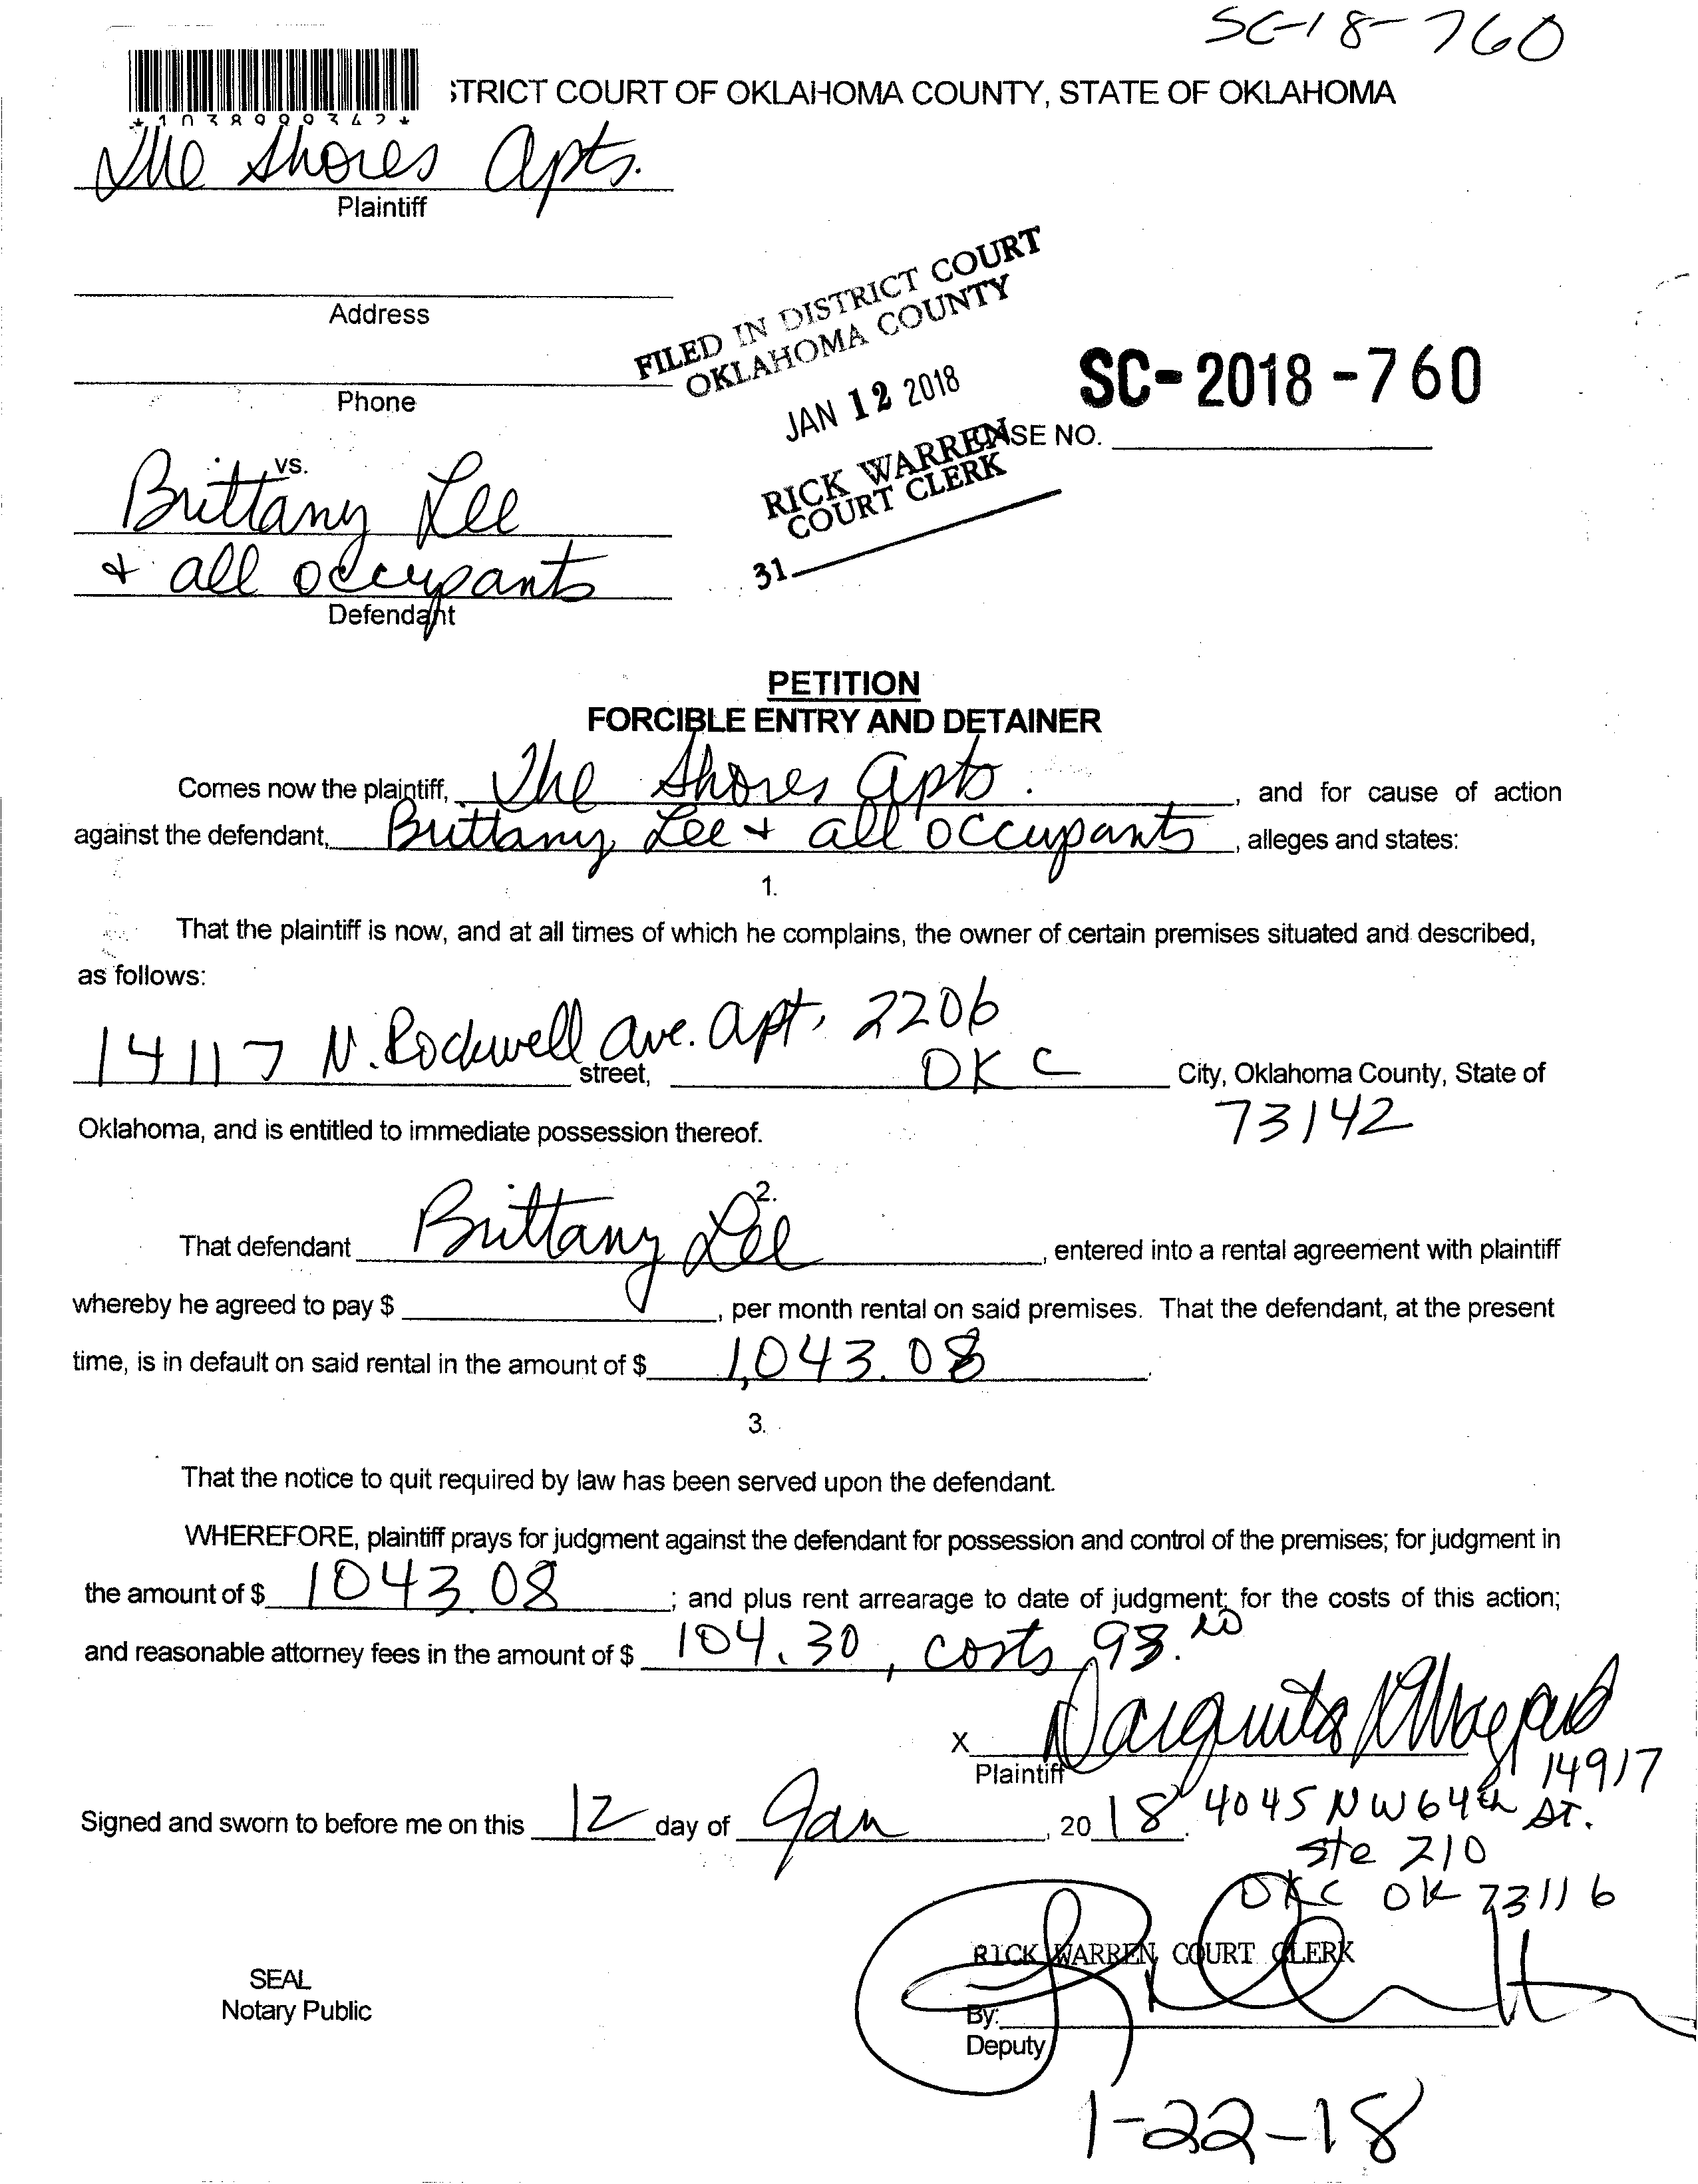 SC-18-760
STRICT COURT OF OKLAHOMA COUNTY, STATE OF OKLAHOMA
*1038999342*
The Shores Apts.
Plaintiff
Address
FILED IN DISTRICT COURT
OKLAHOMA COUNTY
Phone
JAN 12 2018
SC-2018-760
RICK WARREN
COURT CLERK
CASE NO.
vs.
Brittany Lee
+ all occupants
31
Defendant
PETITION
FORCIBLE ENTRY AND DETAINER
Comes now the plaintiff, The Shores Apts. , and for cause of action
against the defendant, Brittany Lee + all occupants , alleges and states:
1.
That the plaintiff is now, and at all times of which he complains, the owner of certain premises situated and described,
as follows:
14117 N. Rockwell Ave. Apt. 2206
street, OKC City, Oklahoma County, State of
73142
Oklahoma, and is entitled to immediate possession thereof.
2.
That defendant Brittany Lee , entered into a rental agreement with plaintiff
whereby he agreed to pay $ , per month rental on said premises. That the defendant, at the present
time, is in default on said rental in the amount of $ 1,043.08 .
3.
That the notice to quit required by law has been served upon the defendant.
WHEREFORE, plaintiff prays for judgment against the defendant for possession and control of the premises; for judgment in
the amount of $ 1043.08 ; and plus rent arrearage to date of judgment; for the costs of this action;
and reasonable attorney fees in the amount of $ 104.30, costs 93.
X
Plaintiff 14917
Signed and sworn to before me on this 12 day of Jan , 2018. 4045 NW 64th St.
Ste 210
OKC OK 73116
RICK WARREN, COURT CLERK
SEAL
Notary Public
By:
Deputy
1-22-18